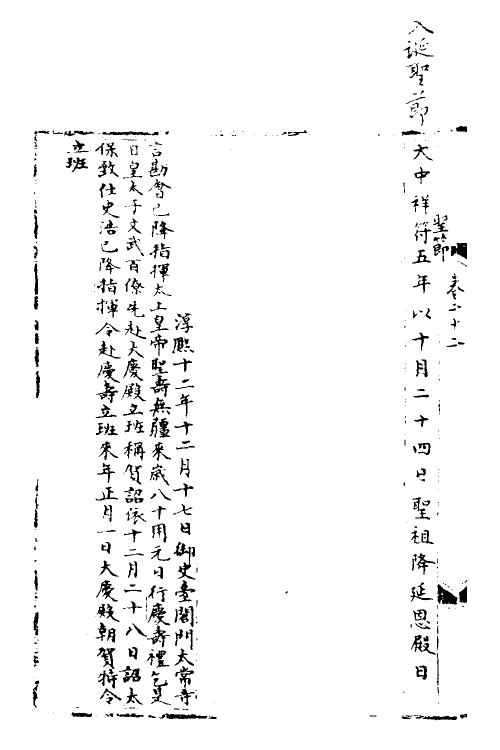 入誕聖節
卷二十二
聖節
大中祥符五年以十月二十四日聖祖降延恩殿日
淳熙十二年十二月十七日御史臺閤門太常寺
言勘會已降指揮太上皇帝聖壽無疆來歲八十用元日行慶壽禮乞是
日皇太子文武百僚先赴大慶殿立班稱賀詔依十二月二十八日詔太
保致仕史浩已降指揮令赴慶壽立班來年正月一日大慶殿朝賀特令
立班